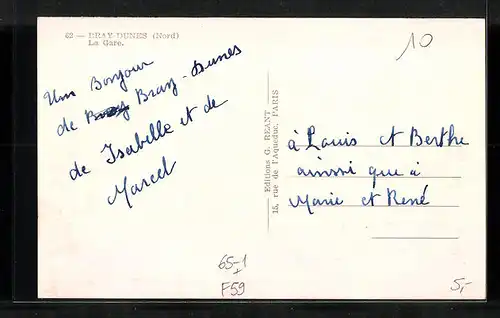 62 — BRAY-DUNES (Nord)
La Gare.
10
Un Bonjour
de Bray-Dunes
de Isabelle et de
Marcel
Editions G. REANT
15, rue de l'Aqueduc, PARIS
à Louis et Berthe
ainsi que à
Marie et René
65-1
F59
5,-